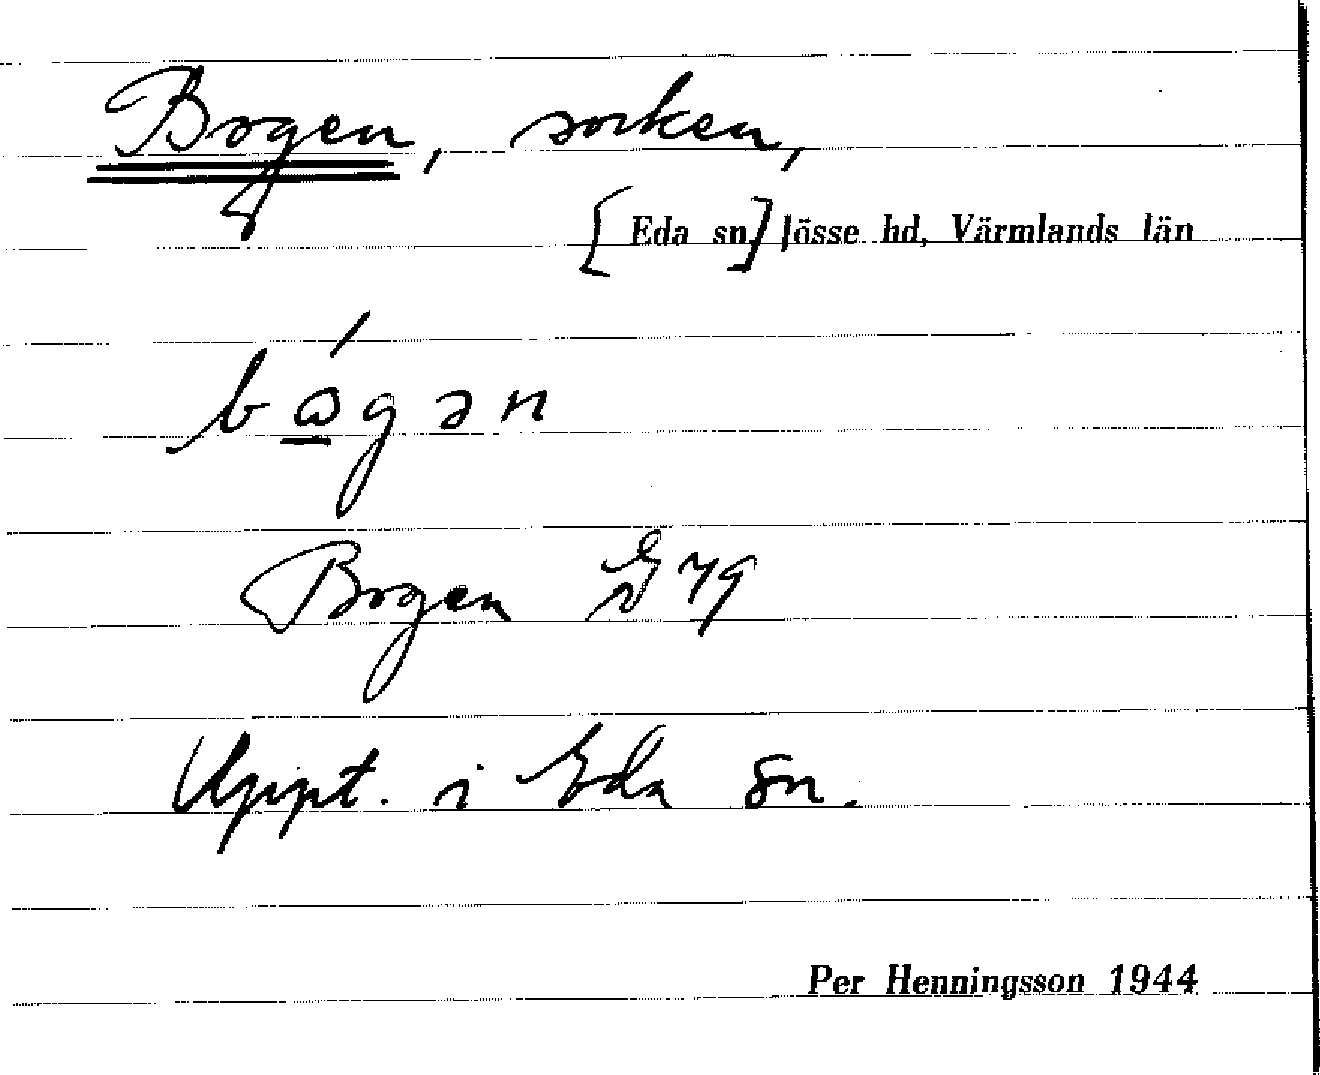 Bogen, socken,
[Eda sn] Jösse hd, Värmlands län
Bogen G 79
Uppt. i Eda sn.
Per Henningsson 1944